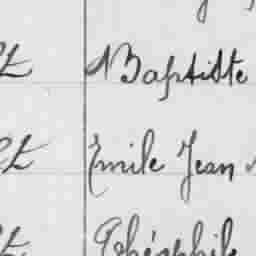 Baptiste
Emile Jean
Théophile